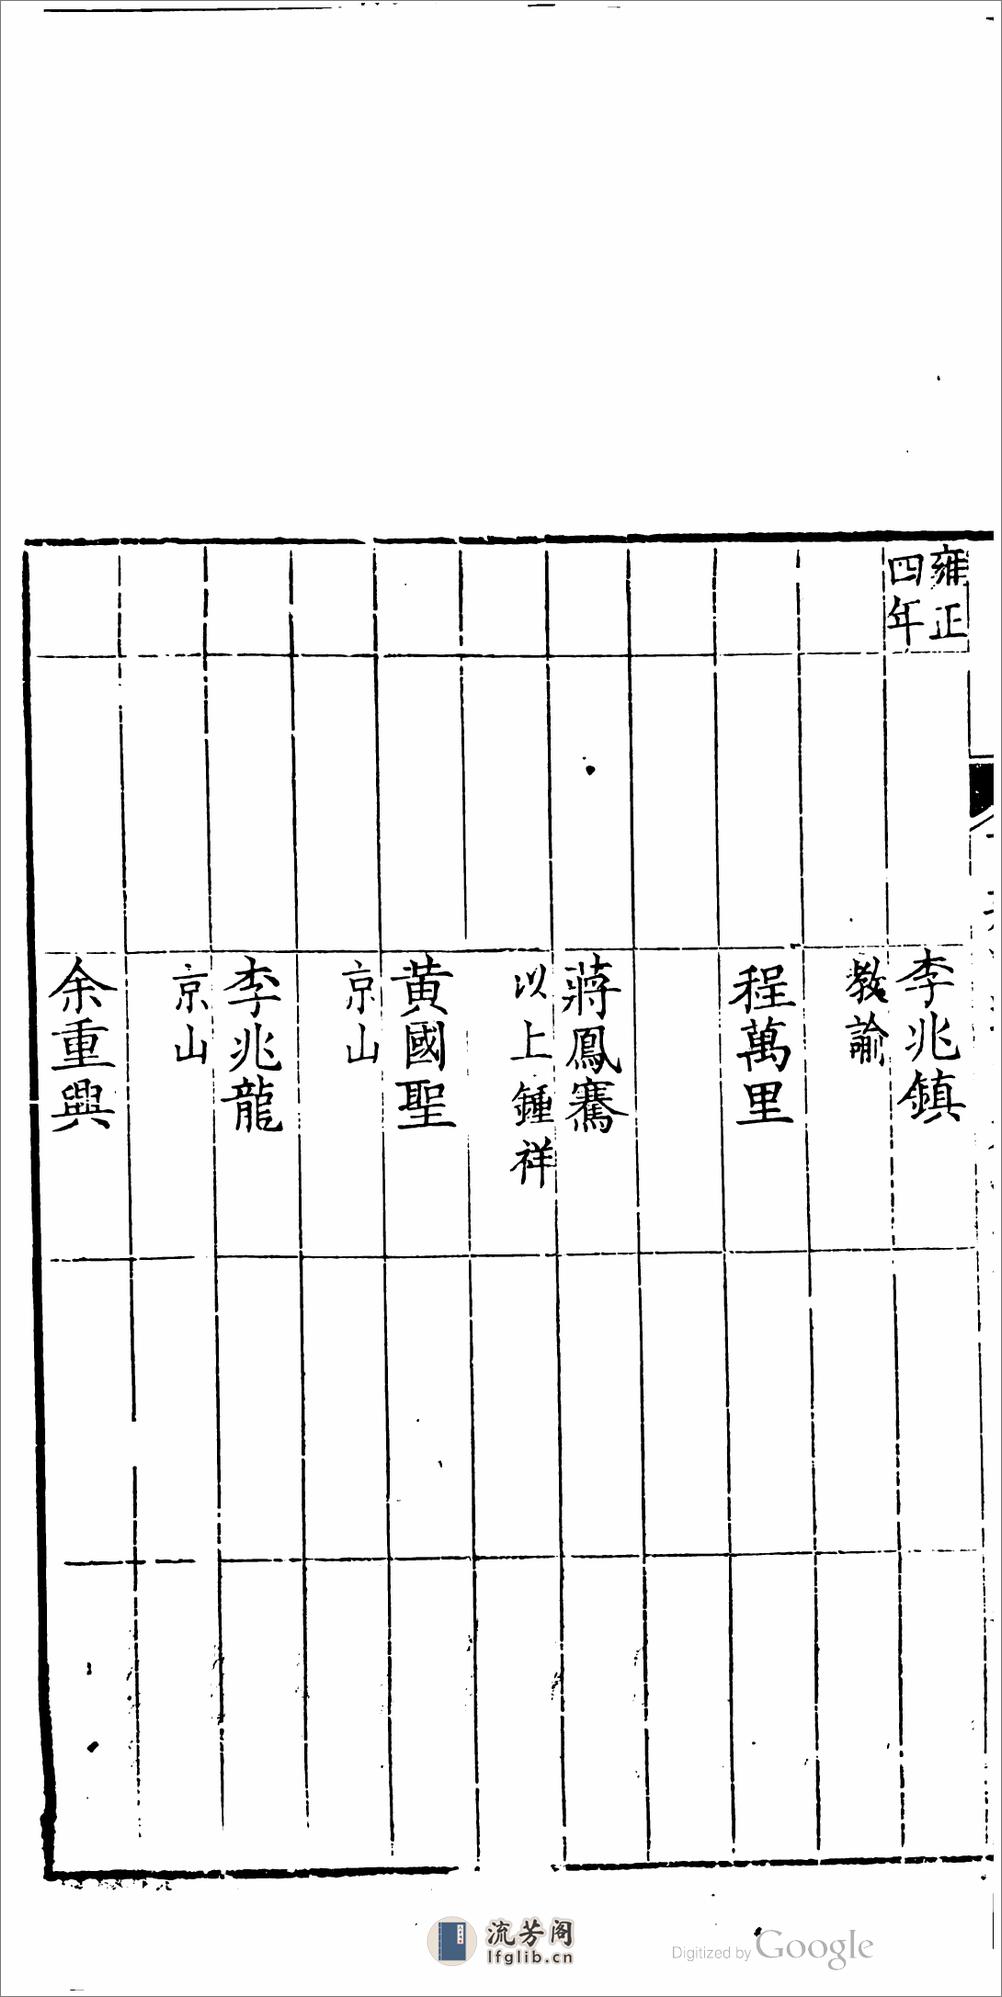 雍正
四年
李兆鎮
教諭
程萬里
蔣鳳騫
以上鍾祥
黄國聖
京山
李兆龍
京山
余重興
流芳阁
lfglib.cn
Digitized by Google